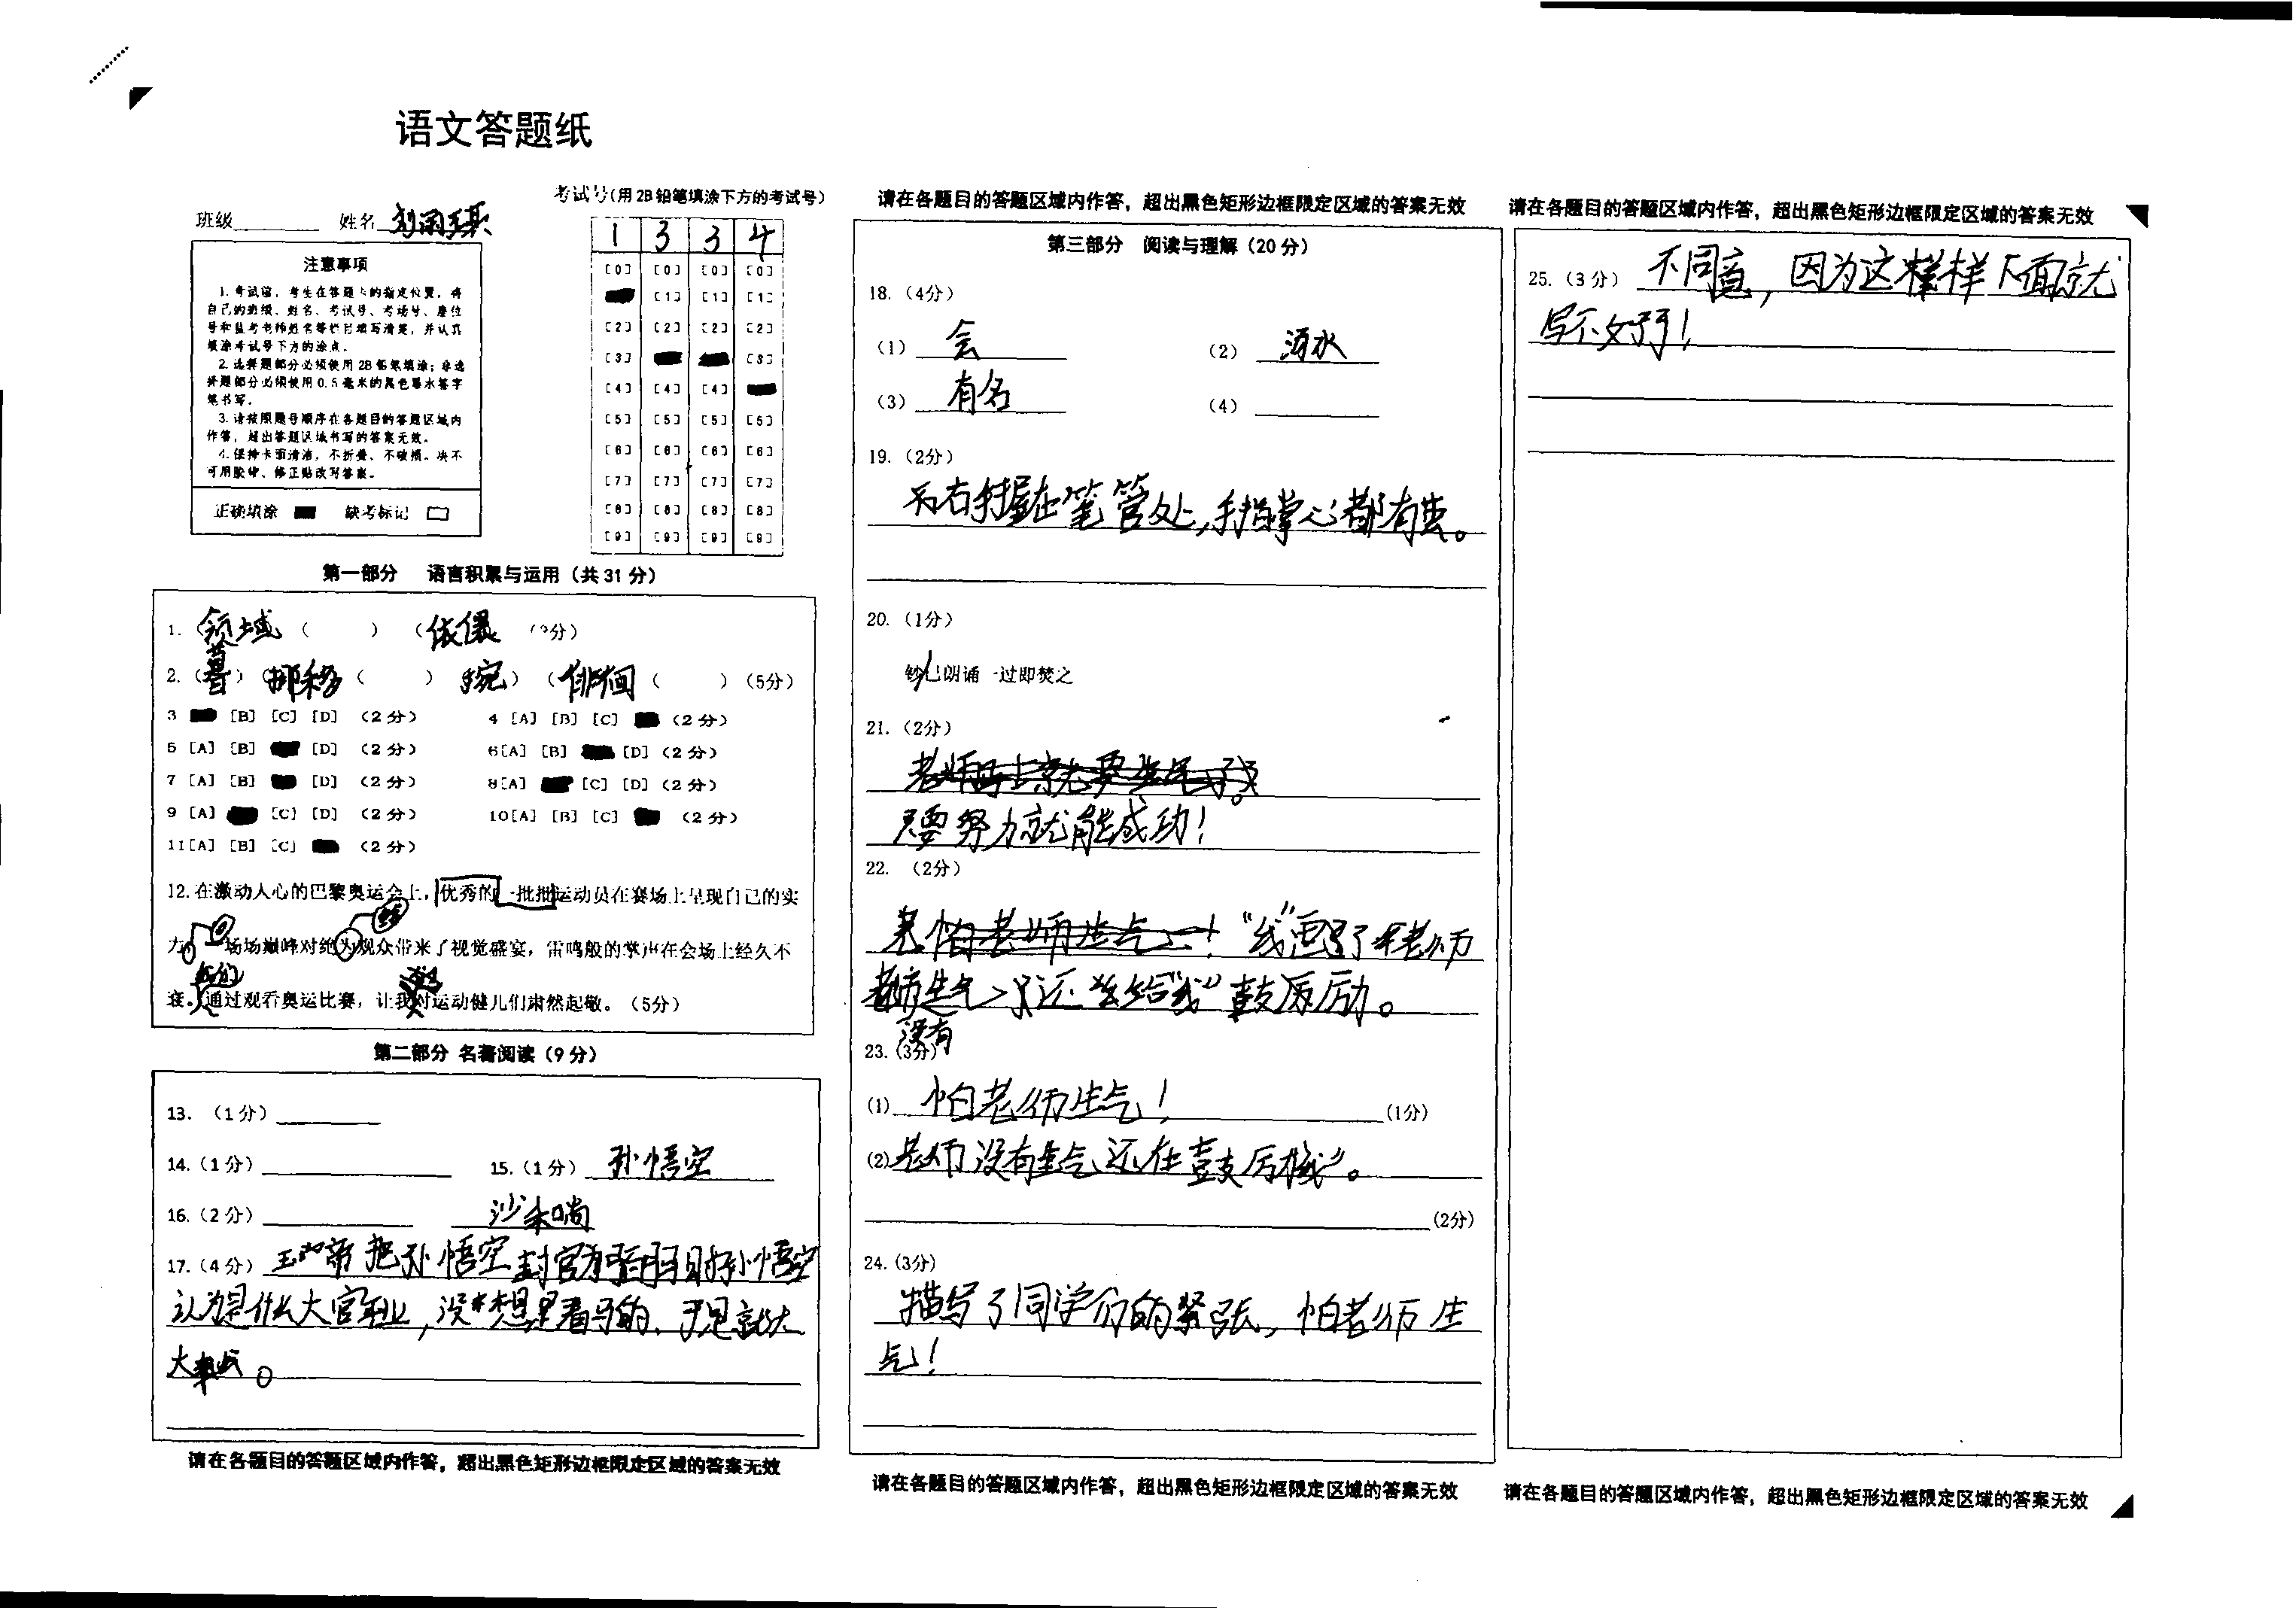 语文答题纸
班级 姓名
考试号(用2B铅笔填涂下方的考试号)
1 3 3 4
注意事项
1.考试前，考生在答题卡的指定位置，将
自己的班级、姓名、考试号、考场号、座位
号和监考老师姓名等栏目填写清楚，并认真
填涂考试号下方的涂点。
2.选择题部分必须使用2B铅笔填涂；非选
择题部分必须使用0.5毫米的黑色墨水签字
笔书写。
3.请按照题号顺序在各题目的答题区域内
作答，超出答题区域书写的答案无效。
4.保持卡面清洁，不折叠、不破损。决不
可用胶带、修正贴改写答案。
正确填涂 缺考标记
[0] [0] [0] [0]
[1] [1] [1]
[2] [2] [2] [2]
[3] [3]
[4] [4] [4]
[5] [5] [5] [5]
[6] [6] [6] [6]
[7] [7] [7] [7]
[8] [8] [8] [8]
[9] [9] [9] [9]
第一部分 语言积累与运用（共31分）
1. （领域 （ ） （依偎 分）
2.（ ）（挪移（ ） 婉）（徘徊（ ）（5分）
3 [B] [C] [D] （2分） 4 [A] [B] [C] （2分）
5 [A] [B] [D] （2分） 6[A] [B] [D]（2分）
7 [A] [B] [D] （2分） 8[A] [C] [D]（2分）
9 [A] [C] [D] （2分） 10[A] [B] [C] （2分）
11[A] [B] [C] （2分）
12.在激动人心的巴黎奥运会上，优秀的一批批运动员在赛场上呈现自己的实
力。一场场巅峰对绝为观众带来了视觉盛宴，雷鸣般的掌声在会场上经久不
衰。通过观看奥运比赛，让我对运动健儿们肃然起敬。（5分）
第二部分 名著阅读（9分）
13. （1分）
14.（1分） 15.（1分） 孙悟空
16.（2分）
17.（4分） 把孙悟空封官为 孙悟空
认为是什么大官 ，没 想是看马的、于是就大
大
请在各题目的答题区域内作答，超出黑色矩形边框限定区域的答案无效
请在各题目的答题区域内作答，超出黑色矩形边框限定区域的答案无效
第三部分 阅读与理解（20分）
18.（4分）
（1） 会 （2） 洒水
（3） 有名 （4）
19.（2分）
右手握在笔管处,手指掌心都有 。
20.（1分）
钞已朗诵一过即焚之
21.（2分）
只要努力就能成功！
22. （2分）
“线”画 了 老师
生气 还 给“线”鼓 励。
没有
23.（3分）
(1) 怕老师生气！ (1分)
(2) 老师没有生气还在鼓厉“线”。
(2分)
24.(3分)
描写了同学们的紧张，怕老师生
气！
请在各题目的答题区域内作答，超出黑色矩形边框限定区域的答案无效
请在各题目的答题区域内作答，超出黑色矩形边框限定区域的答案无效
25.（3分） 不同意，因为这 样下面就
写不 了！
请在各题目的答题区域内作答，超出黑色矩形边框限定区域的答案无效